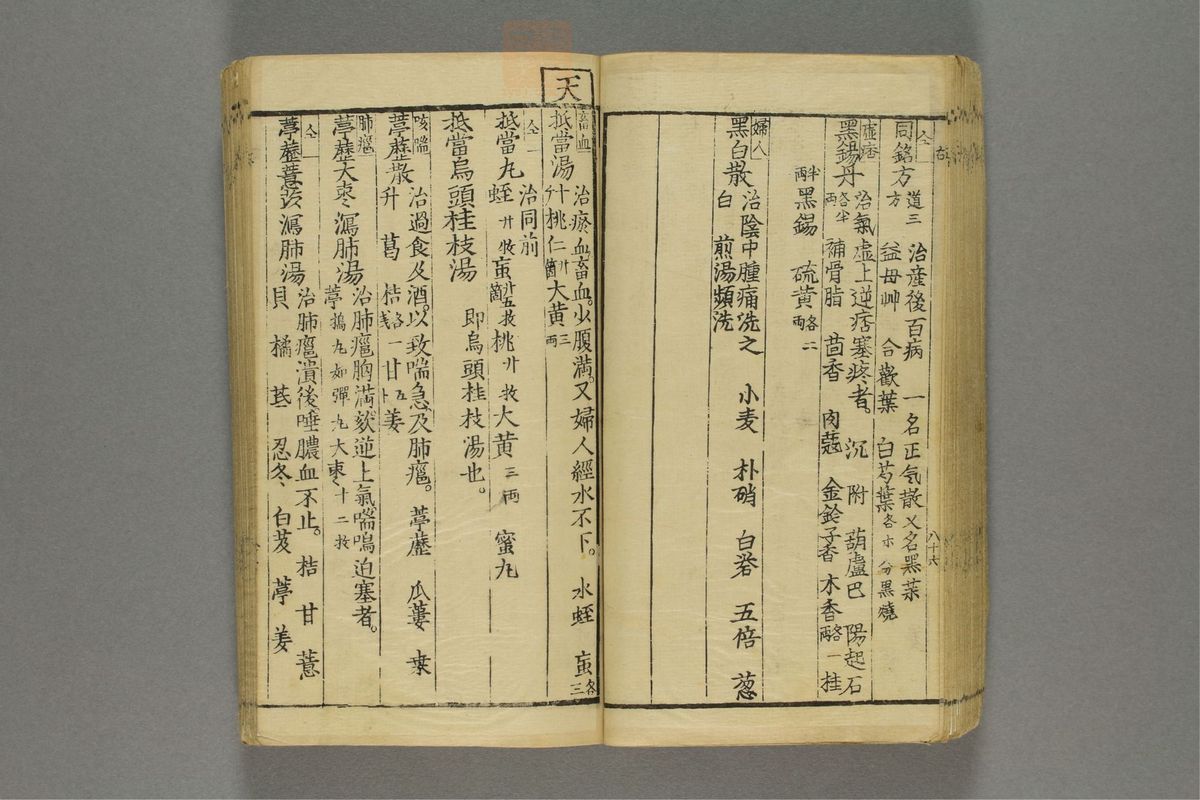 同銘方 道三方 治産後百病 一名正気散又名黒薬
益母艸 合歡葉 白芍葉各等分黒燒
虛痞
黑錫丹 治氣虛上逆痞塞疼者。 沉 附 葫盧巴 陽起石各半両
補骨脂 茴香 肉蔲 金鈴子香 木香各一両 桂半両
黑錫 硫黄各二両
婦人
黑白散 治陰中腫痛洗之 小麦 朴硝 白礬 五倍 葱白
煎湯頻洗
八十六
天
畜血
抵當湯 治瘀血畜血。少腹滿。又婦人經水不下。 水蛭 䖟各三十
桃仁廿箇 大黄三両
仝
抵當丸 治同前
蛭廿枚 䖟廿五箇 桃廿枚 大黄三両 蜜丸
抵當烏頭桂枝湯 即烏頭桂枝湯也。
咳喘
葶藶散 治過食及酒。以致喘急及肺癰。 葶藶 瓜蔞 桑
升 葛 桔各一戔 甘五分 姜
肺癰
葶藶大棗瀉肺湯 治肺癰胸滿欬逆上氣喘鳴迫塞者。
葶搗丸如彈丸 大棗十二枚
仝
葶藶薏苡瀉肺湯 治肺癰潰後唾膿血不止。 桔 甘 薏
貝 橘 芪 忍冬 白芨 葶 姜